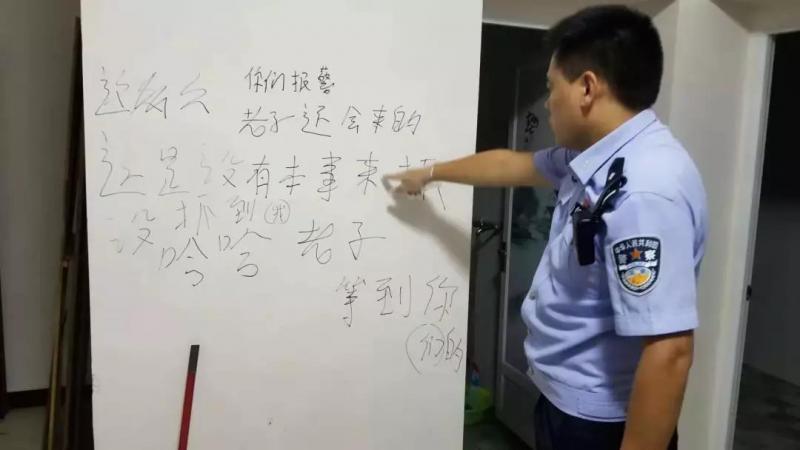 这么久
你们报警
老子还会来的
还是没有本事来
没抓到
哈哈 老子
等到你
们的
中华人民共和国
警察